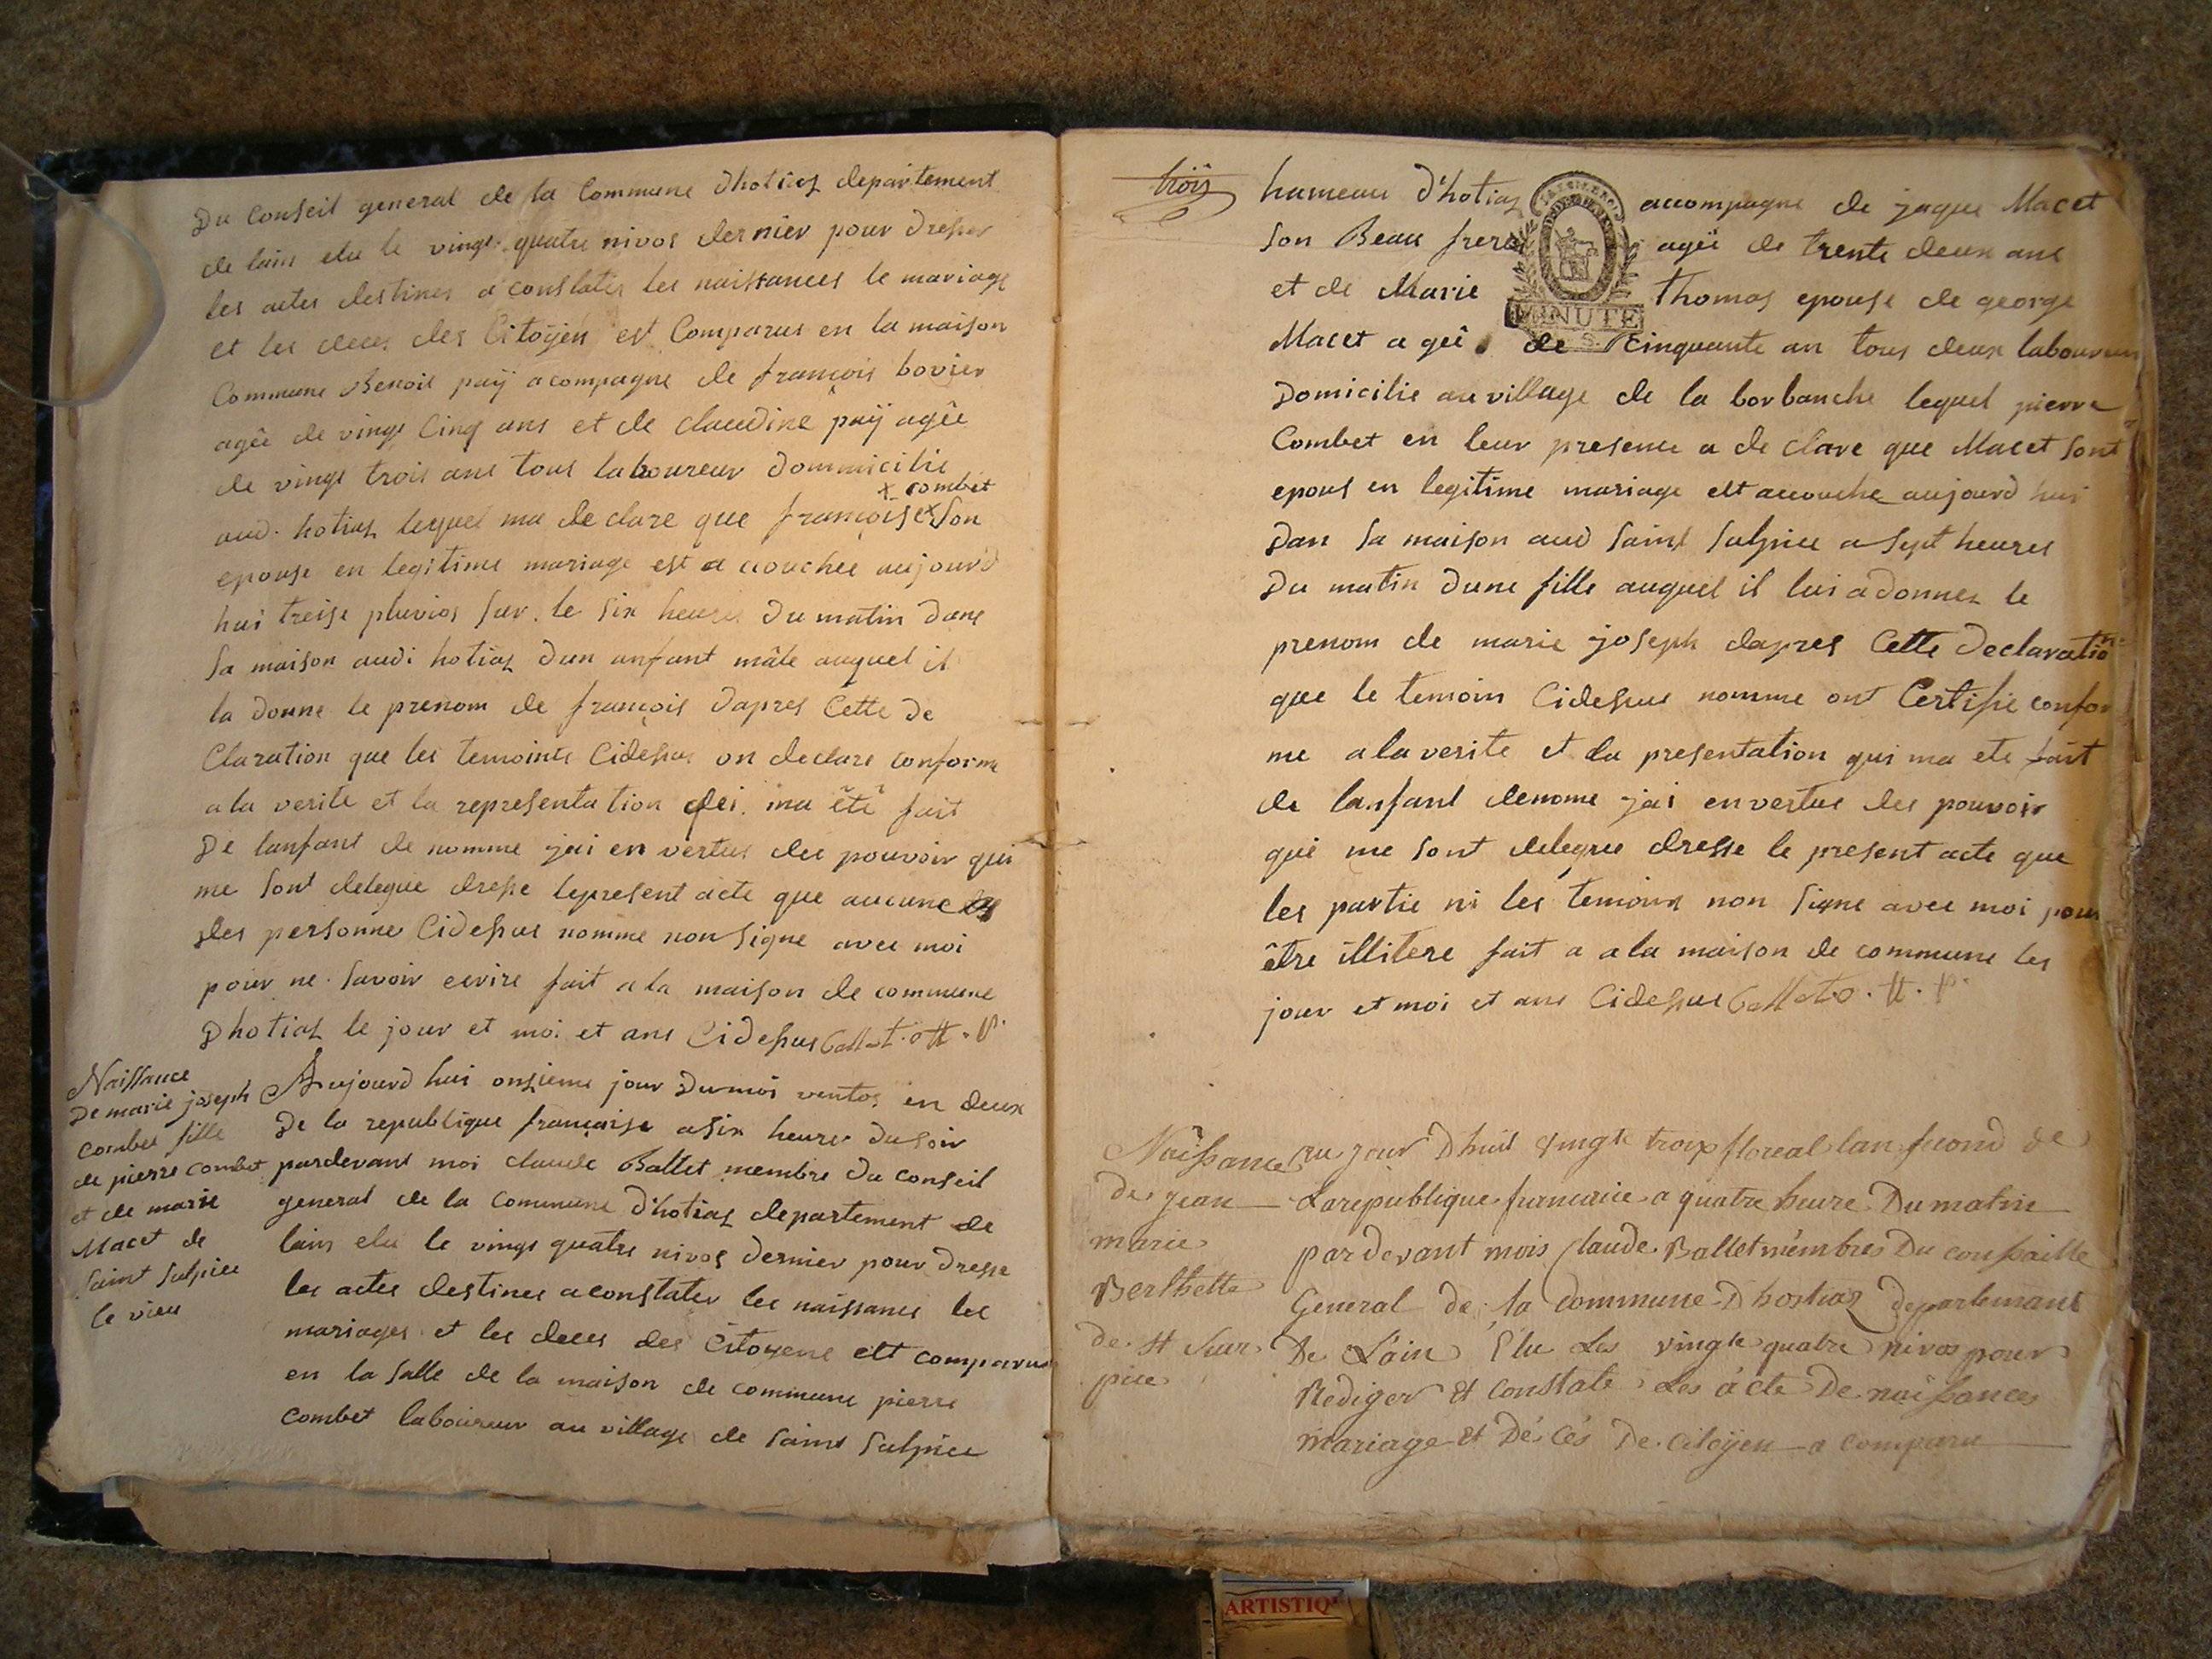 Du Conseil general de la Commune Dhotias departement
de lain elu le vingt quatre nivos dernier pour dresser
les actes destines a constater les naissances le mariage
et les deces des Citoÿen est Comparus en la maison
Commune Benoit paÿ acompagne de françois bovier
agêe de vingt Cinq ans et de claudine paÿ agêe
de vingt trois ans tous laboureur dommicilie
x combet
aud. hotias lequel ma declare que françoise x Son
epouse en legitime mariage est a couchee aujourd
hui treise pluvios sur le six heures du matin dans
sa maison audi hotias dun anfant mâle auquel il
la donne le prenom de françois dapres Cette de
Claration que les temoints Cidessus on declare conforme
a la verite et la representation qui ma êtê fait
De lanfant de nomme jai en vertus des pouvoir qui
me sont delegue dresse lepresent acte que aucune
des personne Cidessus nomme non signe avec moi
pour ne savoir ecrire fait a la maison de commune
Dhotias le jour et moi et ans Cidessus Ballet. o tt. P.
Naissance
De marie joseph
combet fille
de pierre combet
et de marie
Macet de
saint sulpice
le vieu
Aujourd hui onsieme jour Dumoi ventos en deux
De la republique française asix heures du soir
pardevant moi claude Ballet membre du conseil
general de la commune d'hotias departement de
lain elu le vingt quatre nivos dernier pour dresse
les actes destines a constater les naissances les
mariages et les deces des Citoyens est comparus
en la salle de la maison de commune pierre
combet laboureur au village de saint sulpice
trois
hameau d'hotias accompagne de jaque Macet
son Beau frere agêe de trente deux ans
et de Marie Thomas epouse de george
MINUTE
Macet agêe de cinquante an tous deux laboureur
Domicilie au village de la borbanche lequel pierre
Combet en leur presence a de clare que Macet sont
epous en legitime mariage est acouche aujourd hui
Dan sa maison aud saint sulpice a sept heures
Du matin dune fille auquel il lui a donnez le
prenom de marie joseph dapres Cette declaration
que le temoin Cidessus nomme ont Certifie confor
me a la verite et la presentation qui ma ete fait
de lanfant denome jai en vertus des pouvoir
qui me sont delegue dresse le present acte que
les partie ni les temoins non signe avec moi pour
être illitere fait a a la maison de commune les
jour et moi et ans Cidessus Ballet o. tt. P.
Naissance
de jean
marie
Berthette
de St Sur
pice
au jour Dhuit vingt troix floreal lan second de
La republique francaice a quatre heure Du matin
par devant mois Claude Ballet membres Du consaille
General de la commune Dhostias departemant
De L'ain Elu Les vingt quatre nivos pour
Rediger et constate Les acte De naissances
mariage et Décés De citoÿen a comparu
ARTISTIQ